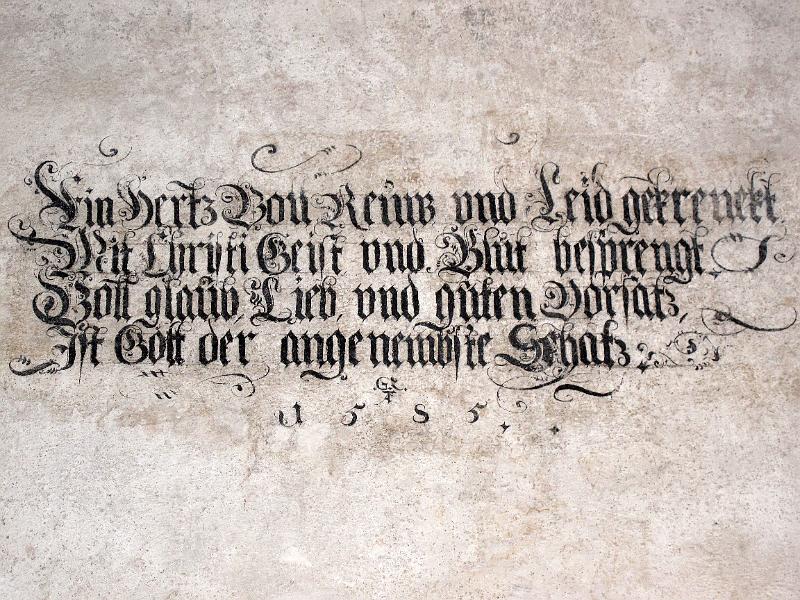 Ein Hertz Voll Reüw vnd Leid gekrenckt,
Mit Christi Geist vnd Blüt besprengt,
Voll glaüb, Lieb, vnd güten Vorsatz,
Ist Gott der angenembste Schatz.
GR
1585.